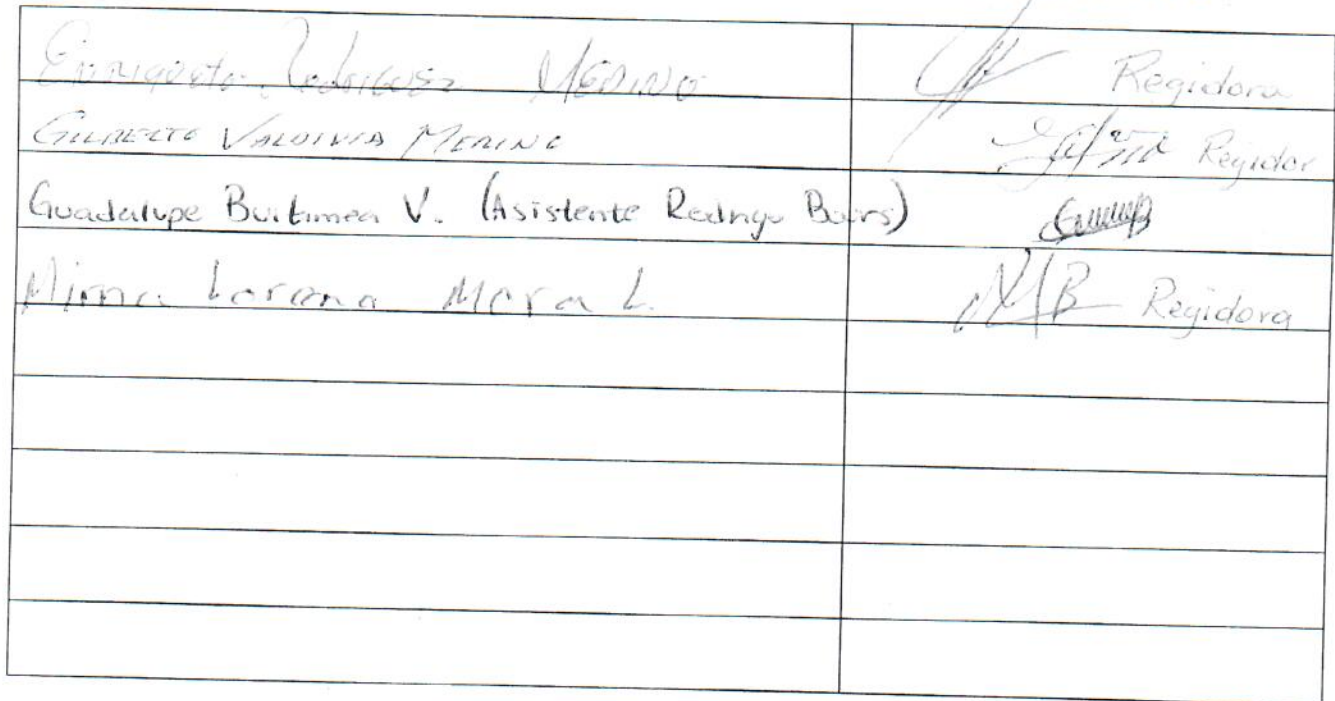 Enriqueta Rodriguez MERINO Regidora
GILBERTO VALDIVIA MERINO Regidor
Guadalupe Buitimea V. (Asistente Rodrigo Bours)
Mirna Lorena Mora L. Regidora